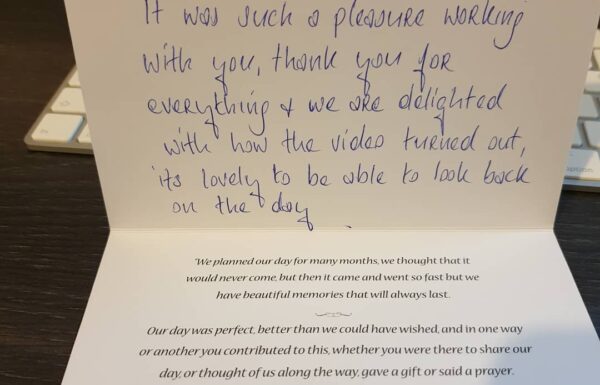 It was such a pleasure working
with you, thank you for
everything & we are delighted
with how the video turned out,
its lovely to be able to look back
on the day.
"We planned our day for many months, we thought that it
would never come, but then it came and went so fast but we
have beautiful memories that will always last.
Our day was perfect, better than we could have wished, and in one way
or another you contributed to this, whether you were there to share our
day, or thought of us along the way, gave a gift or said a prayer.